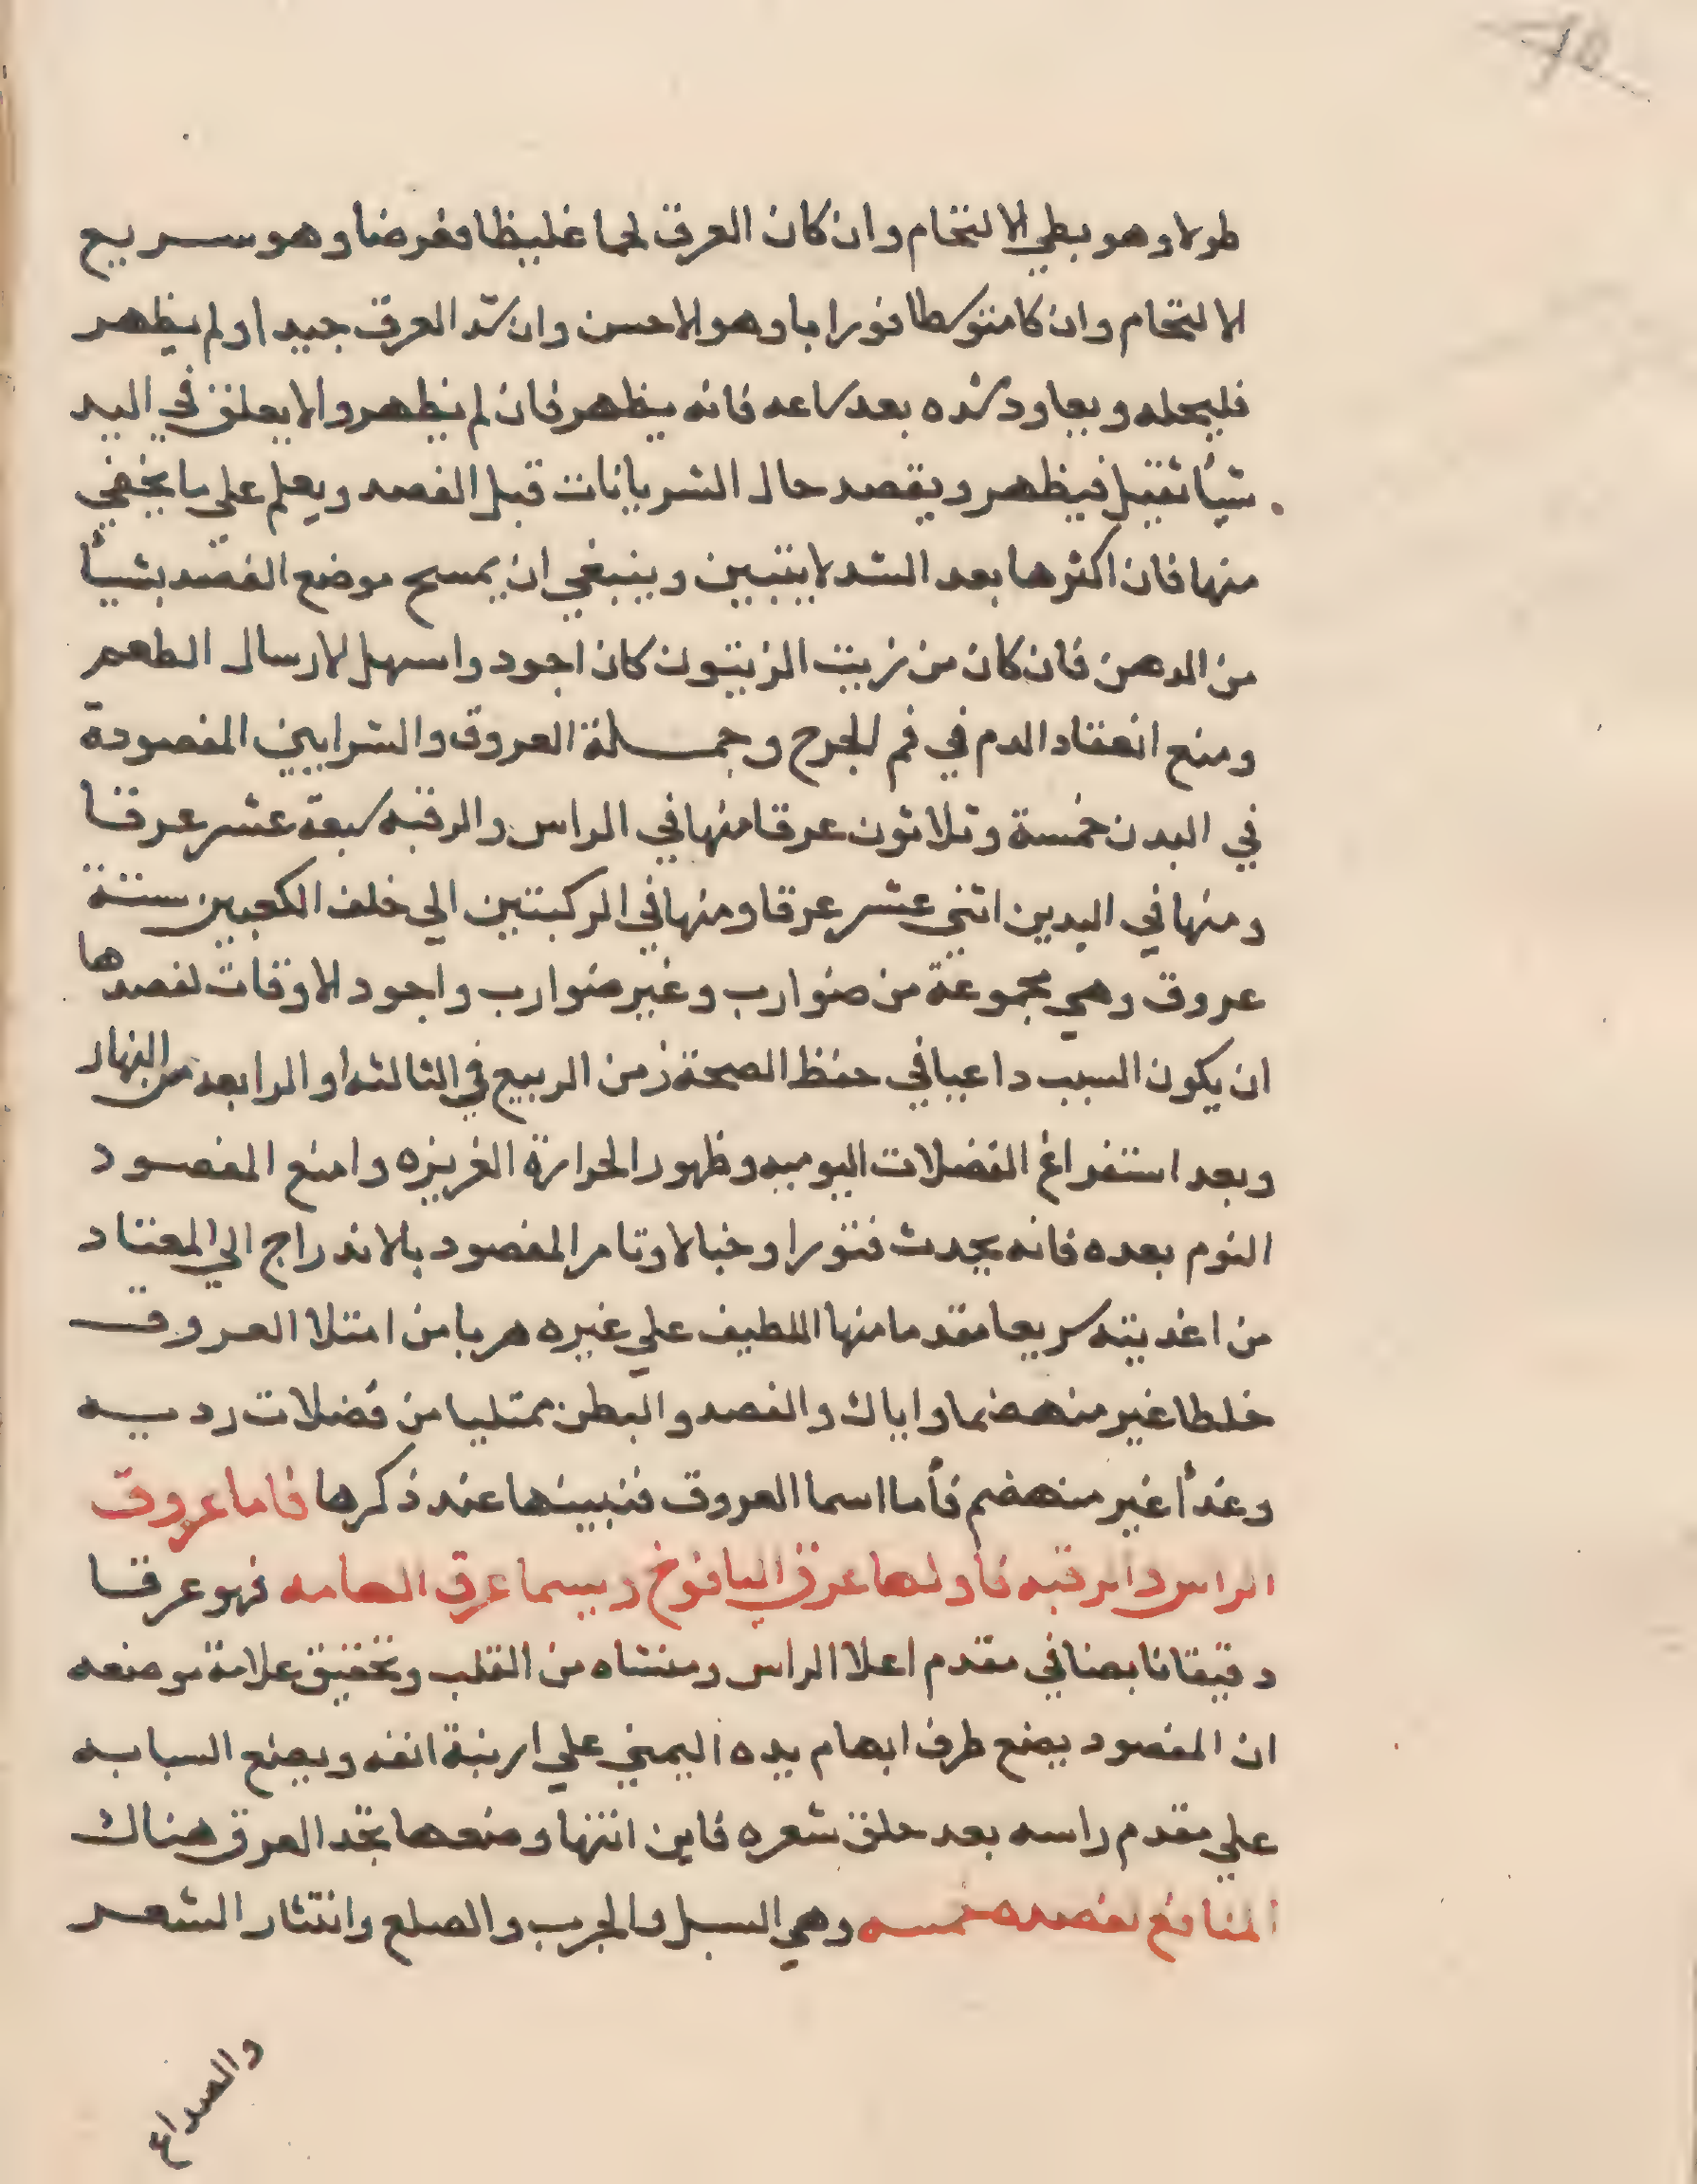 طولا وهو بطي الالتحام وان كان العرق لحما غليظا فعرضا وهو سريع
الالتحام وان كا متوسطا فورابا وهو الاحسن وان شد العرق جيدا ولم يظهر
فليحله ويعاود شده بعد ساعه فانه يظهر فان لم يظهر والا يعلق في اليد
شيأ ثقيل فيظهر ويقصد حال الشريانات قبل الفصد ويعلم علي ما يخفي
منها فان اكثرها بعد الشد لا يتبين وينبغي ان يمسح موضع الفصد بشيأ
من الدهن فان كان من زيت الزيتون كان اجود واسهل لارسال الطعم
ومنع انعقاد الدم في فم الجرح وجملة العروق والشرايين المفصودة
في البدن خمسة وثلاثون عرقا منها في الراس والرقبه سبعة عشر عرقا
ومنها في اليدين اثني عشر عرقا ومنها في الركبتين الي خلف الكعبين ستة
عروق وهي مجموعة من ضوارب وغير ضوارب واجود الاوقات لفصدها
ان يكون السبب داعيا في حفظ الصحة زمن الربيع في الثالثه او الرابعه من النهار
وبعد استفراغ الفضلات اليوميه وظهور الحرارة الغريزه وامنع المفصود
النوم بعده فانه يحدث فتورا وخبالا وتامر المفصود بالاندراج الي المعتاد
من اغذيته سريعا مقدما منها اللطيف علي غيره هربا من امتلا العروق
خلطا غير منهضما واياك والفصد والبطن ممتليا من فضلات رديه
وغذأ غير منهضم فأما اسما العروق فنبينها عند ذكرها فاما عروق
الراس والرقبه فاولها عرق اليافوخ ويسما عرق الهامه فهو عرقا
دقيقا نابضا في مقدم اعلا الراس ومنشاه من القلب وتحقيق علامة موضعه
ان المفصود يضع طرف ابهام يده اليمني علي ارنبة انفه ويضع السبابه
علي مقدم راسه بعد حلق شعره فاين انتها وضعها تجد العرق هناك
المنافع لفصده خمسه وهي السبل والجرب والصلع وانتثار الشعر
والصداع